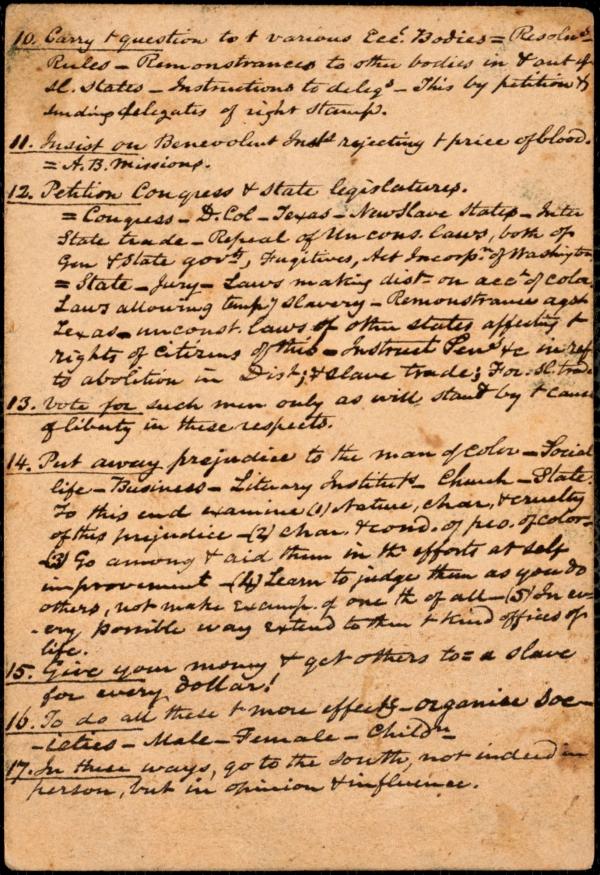 10. Carry t question to t various Ecc. Bodies = Resolns
Rules – Remonstrances to other bodies in & out of
sl. States – Instructions to delegs – This by petition &
sending delegates of right stamp.
11. Insist on Benevolent Insts rejecting t price of blood.
= A. B. Missions.
12. Petition Congress & state legislatures.
= Congress – D. Col – Texas – New Slave States – Inter
State trade – Repeal of Uncons. laws, both of
Gen & State govts, Fugitives, Act Incorpn of Washington
= State – Jury – Laws making distn on acct of color
Laws allowing tempy slavery – Remonstrances agst
Texas – unconst. laws of other states affecting t
rights of citizens of this – Instruct &c in ref
to abolition in Dist; & slave trade; For. sl. trade
13. Vote for such men only as will stand by t cause
of liberty in these respects.
14. Put away prejudice to the man of color – Social
life – Business – Literary Instituts – Church – State.
To this end examine (1) Nature, char, & cruelty
of this prejudice – (2) char. & cond. of peo. of color –
(3) Go among & aid them in thr efforts at self
improvement – (4) Learn to judge them as you do
others, not make examp. of one th of all – (5) In ev-
-ery possible way extend to them t kind offices of
life.
15. Give your money & get others to = a slave
for every dollar!
16. To do all these t more effectly – organise Soc-
-ieties – Male – Female – Childn –
17. In these ways, go to the south, not indeed in
person, but in opinion & influence.